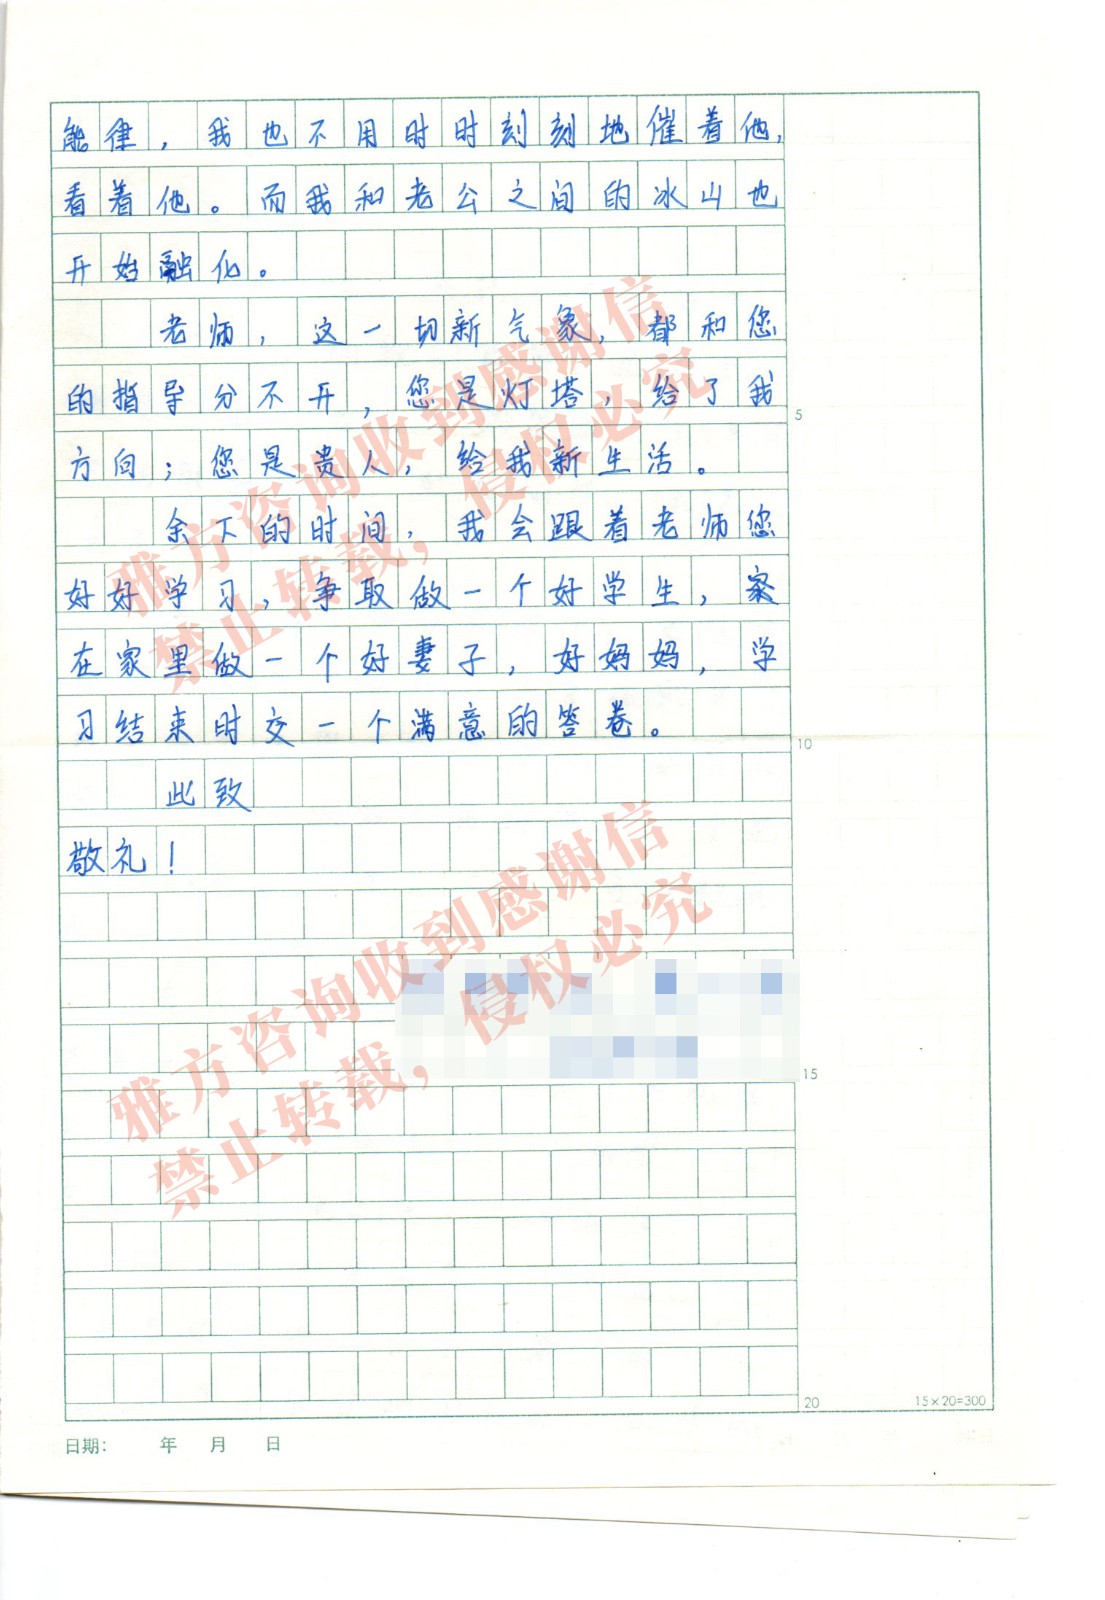 能律，我也不用时时刻刻地催着他，
看着他。而我和老公之间的冰山也
开始融化。
老师，这一切新气象，都和您
的指导分不开，您是灯塔，给了我
方向；您是贵人，给我新生活。
余下的时间，我会跟着老师您
好好学习，争取做一个好学生，家
在家里做一个好妻子，好妈妈，学
习结束时交一个满意的答卷。
此致
敬礼！
雅方咨询收到感谢信
禁止转载，侵权必究
雅方咨询收到感谢信
禁止转载，侵权必究
5
10
15
20
15×20=300
日期： 年 月 日